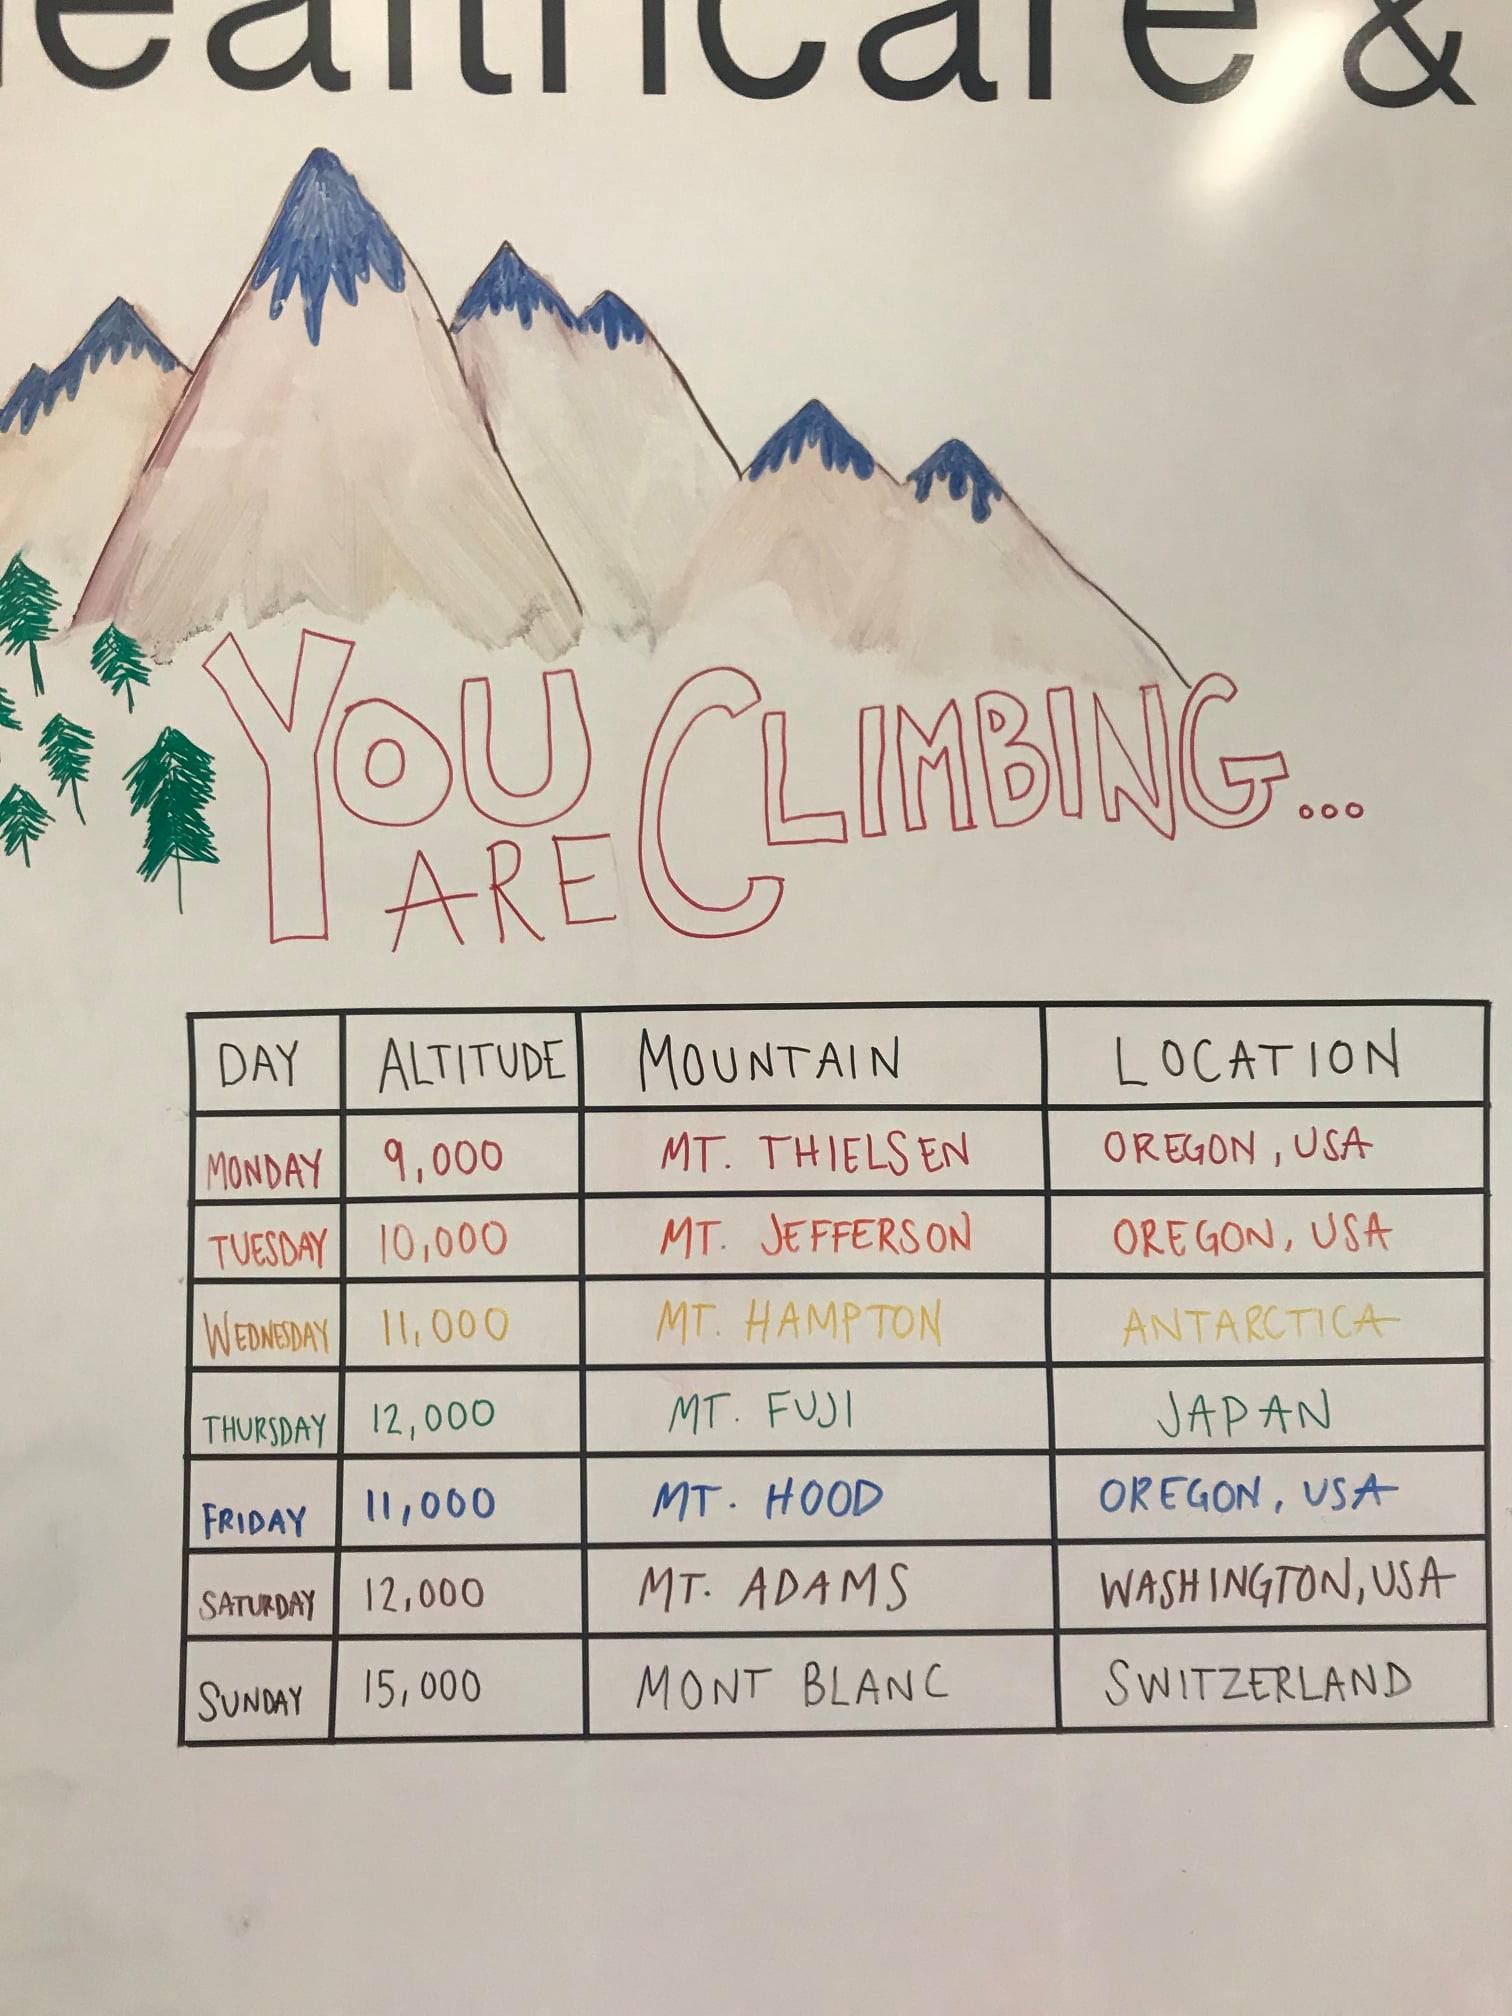 ealthcare &
YOU CLIMBING...
ARE
DAY ALTITUDE MOUNTAIN LOCATION
MONDAY 9,000 MT. THIELSEN OREGON, USA
TUESDAY 10,000 MT. JEFFERSON OREGON, USA
WEDNESDAY 11,000 MT. HAMPTON ANTARCTICA
THURSDAY 12,000 MT. FUJI JAPAN
FRIDAY 11,000 MT. HOOD OREGON, USA
SATURDAY 12,000 MT. ADAMS WASHINGTON, USA
SUNDAY 15,000 MONT BLANC SWITZERLAND